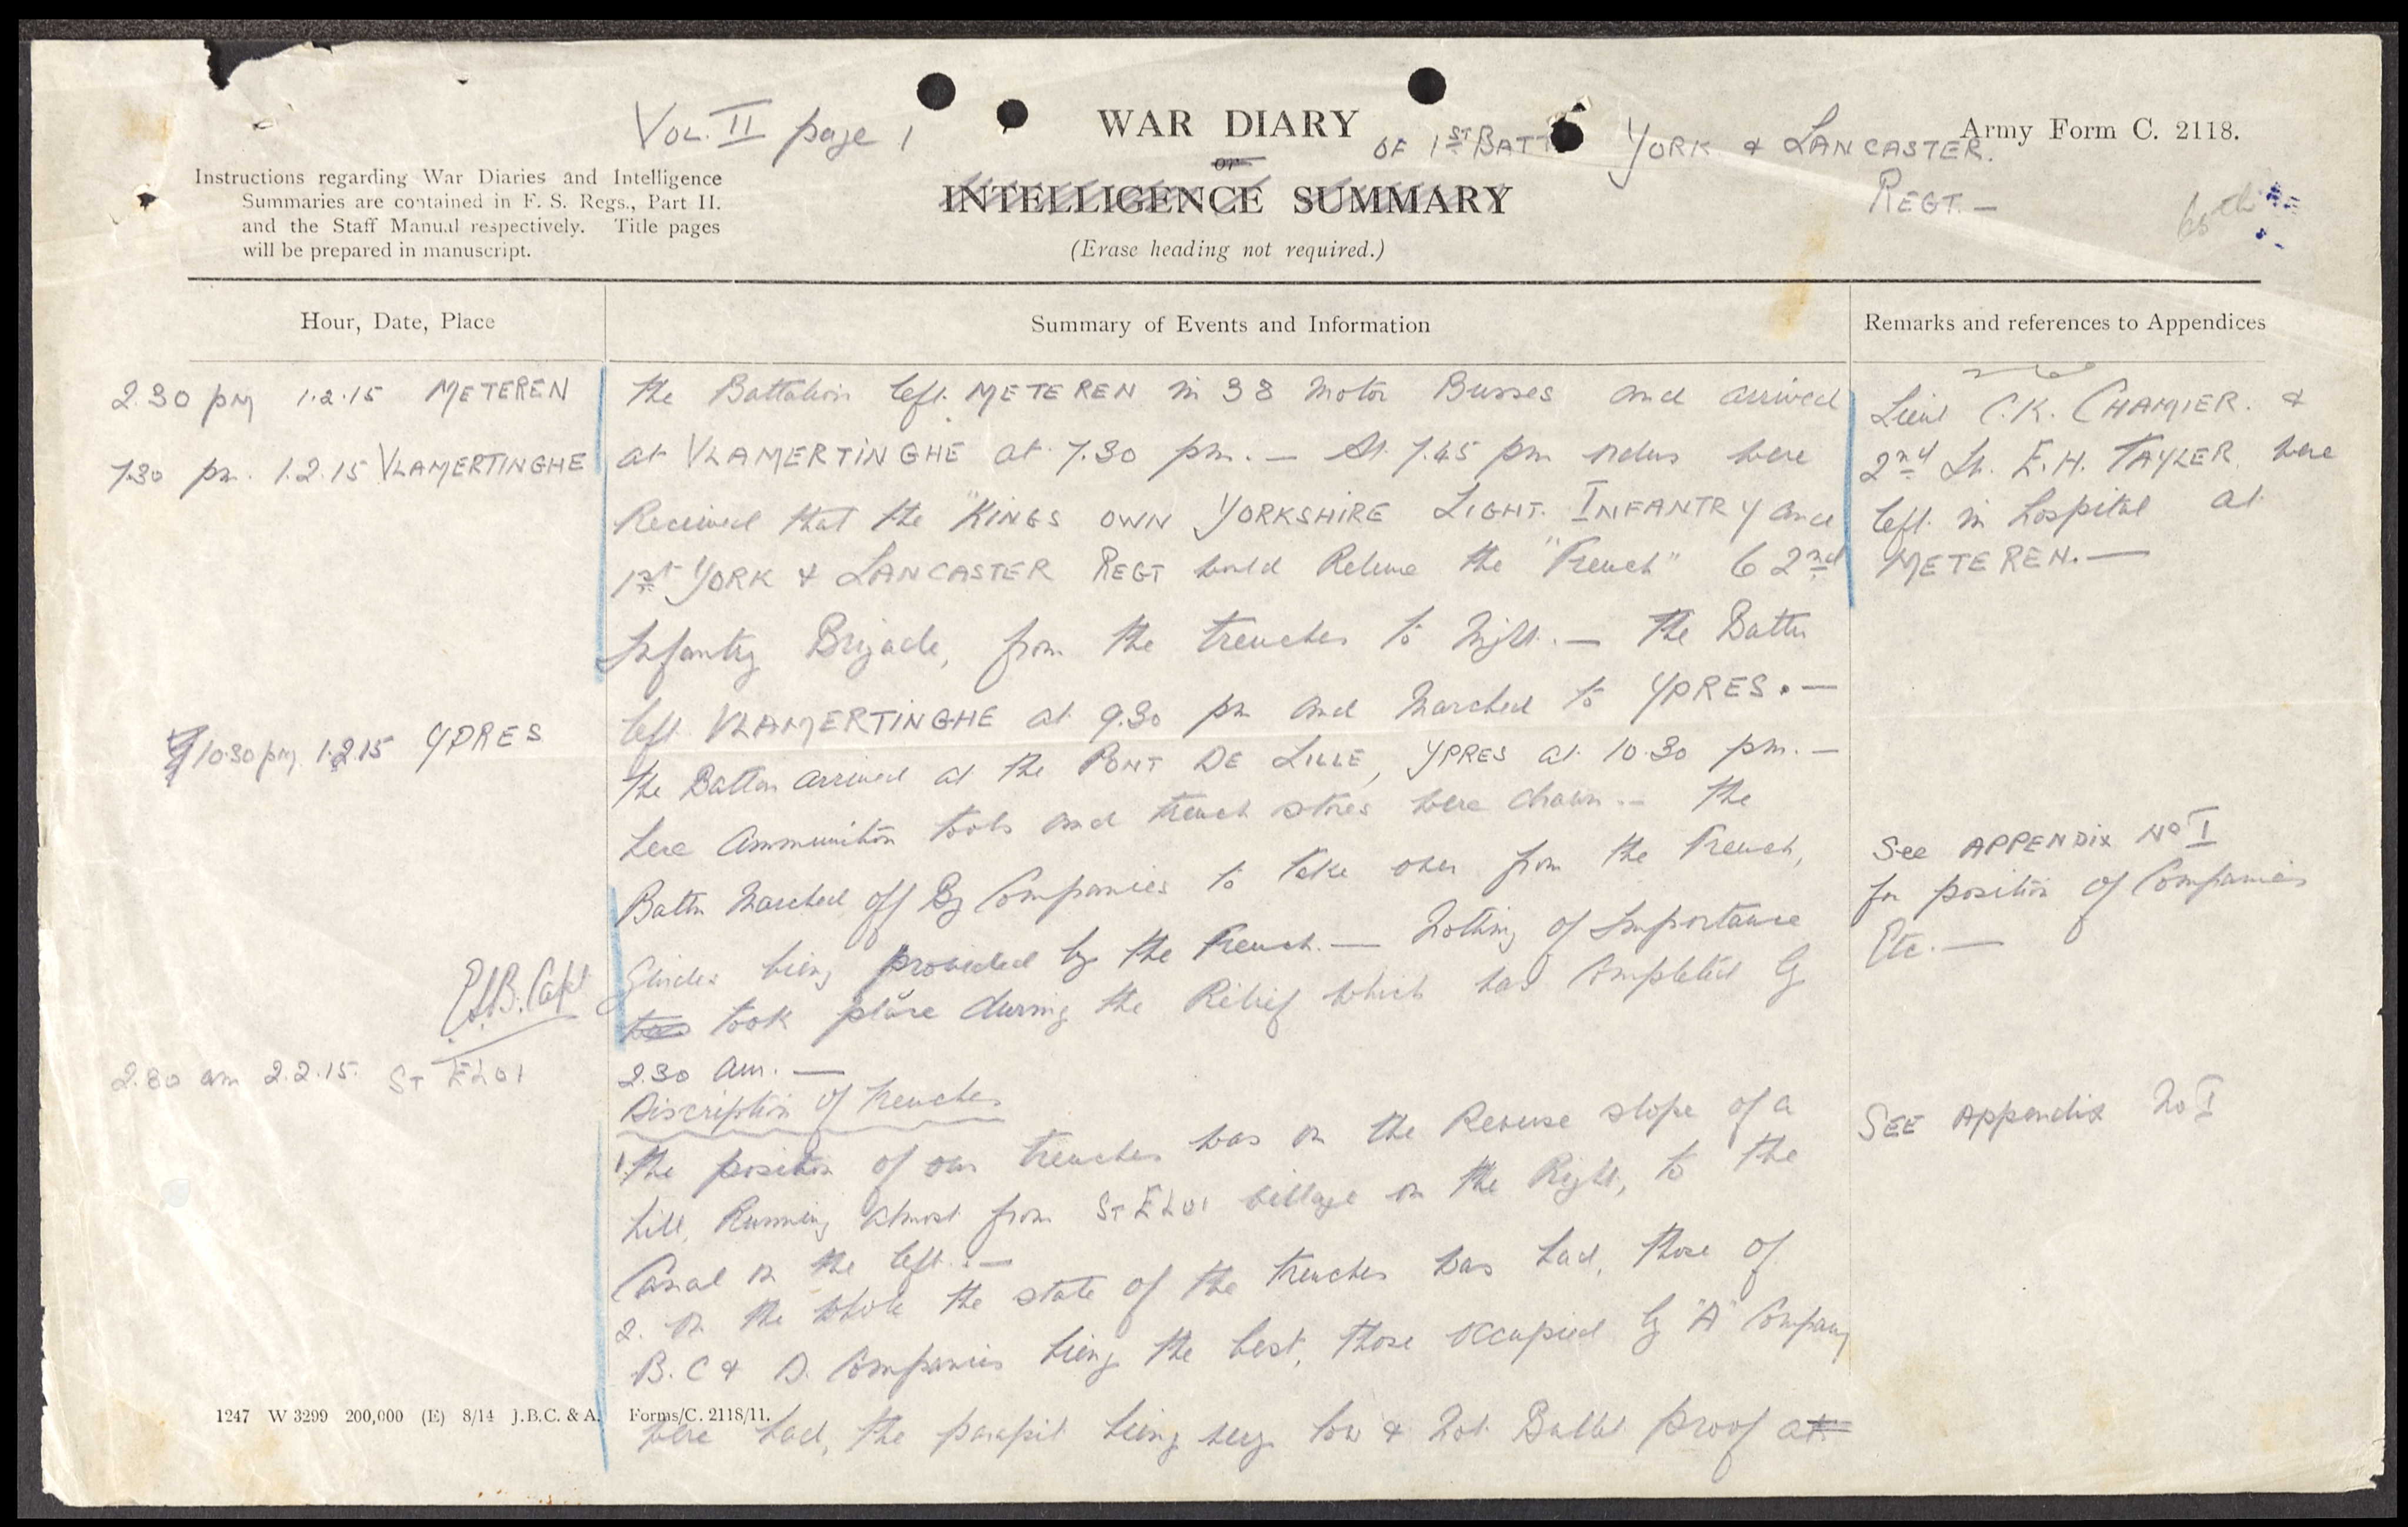 Vol. II page 1
WAR DIARY
or
INTELLIGENCE SUMMARY
(Erase heading not required.)
OF 1ST BATT YORK & LANCASTER
REGT. —
Army Form C. 2118.
Instructions regarding War Diaries and Intelligence
Summaries are contained in F. S. Regs., Part II.
and the Staff Manual respectively. Title pages
will be prepared in manuscript.
Hour, Date, Place
Summary of Events and Information
Remarks and references to Appendices
2.30 pm 1.2.15 METEREN
the Battalion left METEREN in 38 Motor Busses and arrived
Lieut C.K. CHAMIER. &
7.30 pm. 1.2.15 VLAMERTINGHE
at VLAMERTINGHE at 7.30 pm. — At 7.45 pm orders were
2nd Lt. E.H. TAYLER were
Received that the "KINGS OWN YORKSHIRE LIGHT. INFANTRY and
left in hospital at
1st YORK & LANCASTER REGT would Relieve the "French" 62nd
METEREN. —
Infantry Brigade, from the trenches to night. — The Battn
left VLAMERTINGHE at 9.30 pm and Marched to YPRES. —
10.30 pm 1.2.15 YPRES
the Battn arrived at the PONT DE LILLE, YPRES at 10.30 pm. —
here Ammunition tools and trench stores were drawn. — the
Battn Marched off By Companies to take over from the French,
See APPENDIX No I
for position of Companies
Etc. —
Guides being provided by the French. — Nothing of Importance
Capt
took place during the Relief which was Completed by
2.30 am 2.2.15. ST ELOI
2.30 am. —
Discription of trenches
1. the position of our trenches was on the Reverse slope of a
SEE Appendix No I
hill, Running almost from ST ELOI village on the Right, to the
Canal on the left. —
2. On the whole the state of the trenches was bad, those of
B. C & D. Companies being the best, those occupied by "A" Company
were bad, the parapit being very low & not Bullet proof at
1247 W 3299 200,000 (E) 8/14 J.B.C. & A. Forms/C. 2118/11.